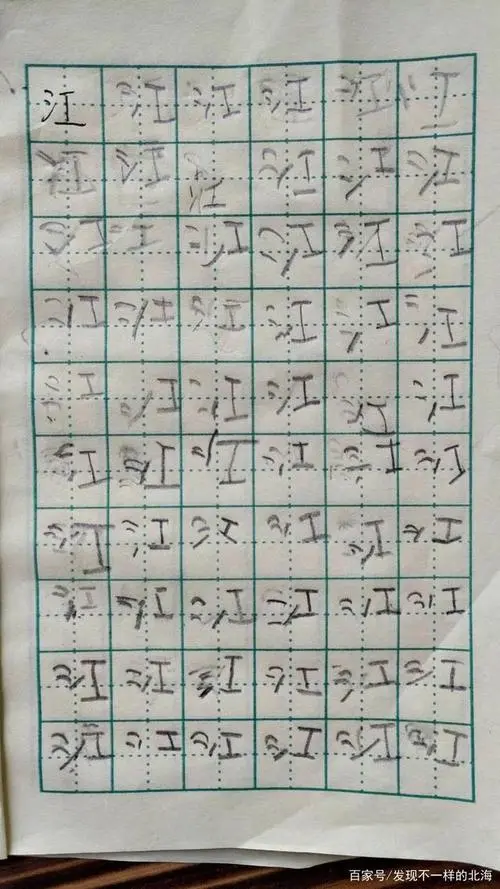 江 江 江 江 江 江
江 江 江 江 江 江
江 江 江 江 江 江
江 江 江 江 江 江
江 江 江 江 江 江
江 江 江 江 江 江
江 江 江 江 江 江
江 江 江 江 江 江
江 江 江 江 江 江
江 江 江 江 江 江
百家号/发现不一样的北海